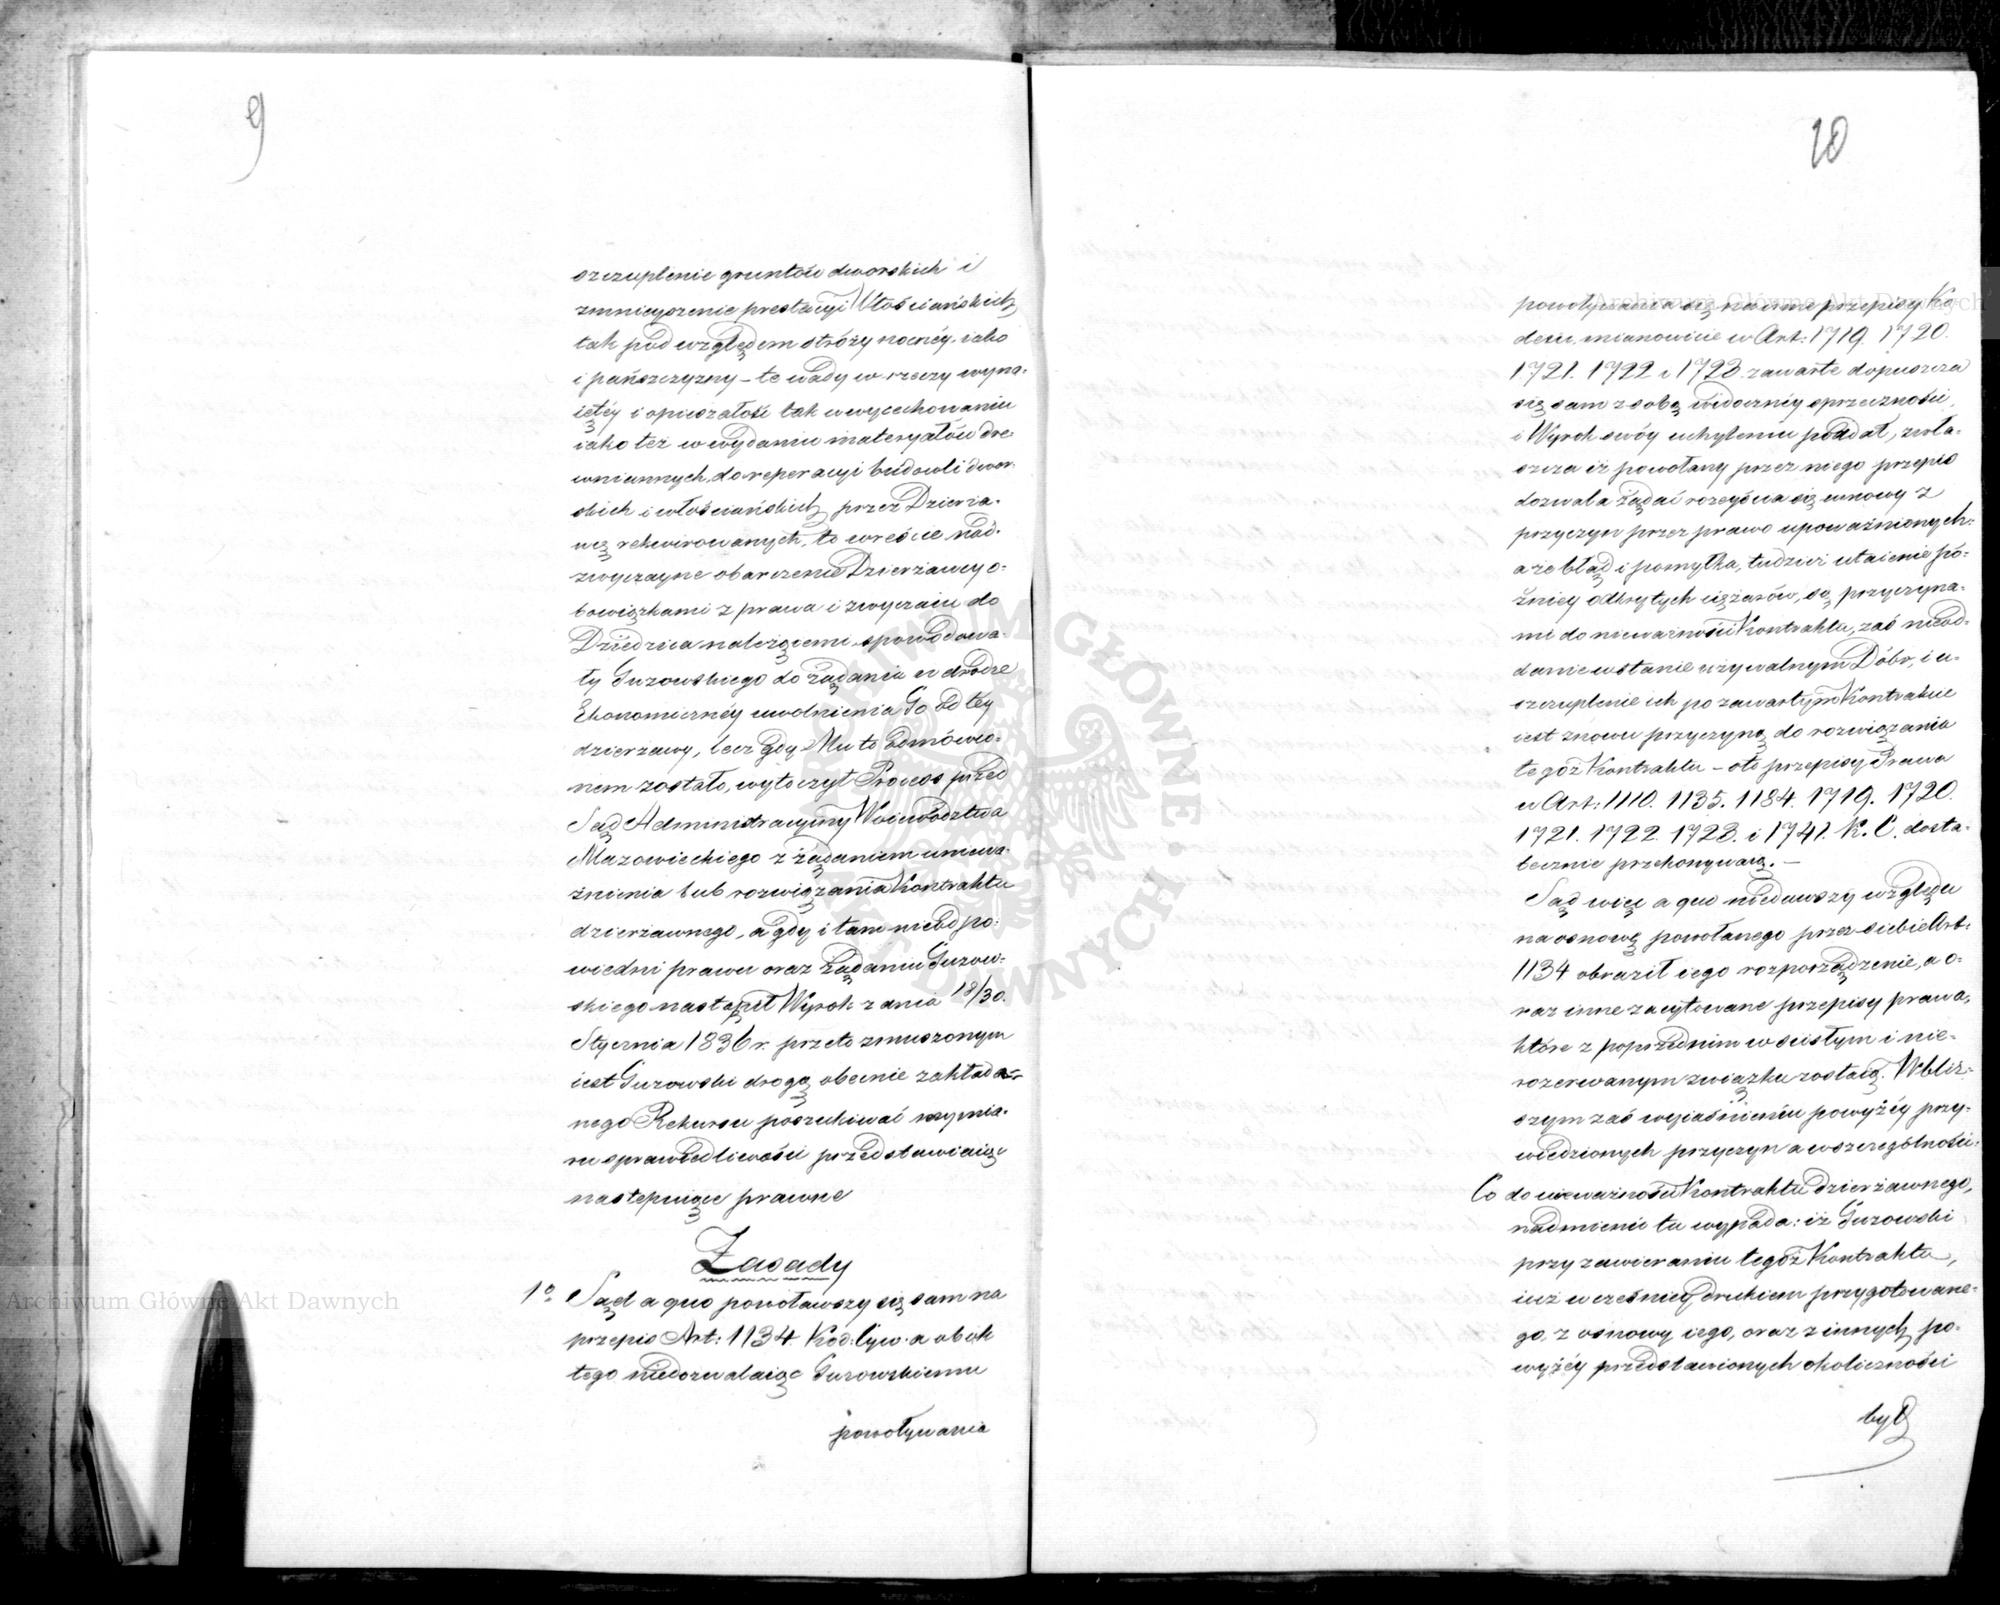 9
szczuplenie gruntów dworskich i
zmnieyszenie prestacyi Włościańskich
tak pod względem stróży nocnéy, iako
i pańszczyzny – te wady w rzeczy wyna-
iętéy i opieszałość tak w wycechowaniu
iako też w wydaniu materyałów dre
wniannych, do reperacyi budowli dwor-
skich i włościańskich przez Dzierża-
wcę rekwirowanych, to wreście nad-
zwyczayne obarczenie Dzierżawcy o-
bowiązkami z prawa i zwyczaiu do
Dziedzica należącemi spowodowa-
ły Guzowskiego do żądania w drodze
Ekonomicznéy uwolnienia Go od téy
dzierżawy, lecz gdy Mu to odmówio-
nem zostało, wytoczył Proces przed
Sąd Administracyiny Województwa
Mazowieckiego z żądaniem uniewa-
żnienia lub rozwiązania Kontraktu
dzierżawnego, a gdy i tam nieodpo-
wiedni prawu oraz żądaniu Guzow-
skiego nastąpił Wyrok z dnia 18/30.
Stycznia 1836 r. przeto zmuszonym
iest Guzowski drogą obecnie zakłada-
nego Rekursu poszukiwać wymia-
ru sprawiedliwości przedstawiaiąc
następuiące prawne
Zasady
1o Sąd a quo powoławszy się sam na
przepis Art: 1134 Kod: Cyw: a obok
tego niedozwalaiąc Guzowskiemu
powoływania
10
powoływania się na inne przepisy Ko
dexu, mianowicie w Art: 1719. 1720.
1721. 1722 i 1723. zawarte dopuszcza
się sam z sobą widocznéy sprzeczności
i Wyrok swóy uchyleniu poddał, zwła-
szcza iż powołany przez niego przepis
dozwala żądać rozeyścia się umowy z
przyczyn przez prawo upoważnionych:
a że błąd i pomyłka, tudzież utaienie pó-
źniey odkrytych ciężarów, są przyczyna-
mi do nieważności Kontraktu, zaś nieod-
danie w stanie używalnym Dóbr, i u-
szczuplenie ich po zawartym Kontrakcie
iest znowu przyczyną do rozwiązania
tegoż Kontraktu – oto przepisy Prawa
w Art: 1110. 1135. 1184. 1719. 1720.
1721. 1722. 1723. i 1741. K. C. dosta-
tecznie przekonywaią. –
Sąd więc a quo niedawszy względu
na osnowę powołanego przez siebie Art:
1134 obraził iego rozporządzenie, a o-
raz inne zacytowane przepisy prawa,
które z poprzednim w ścisłym i nie-
rozerwanym związku zostaią. W bliż-
szym zaś wyiaśnieniu powyżéy przy-
wiedzionych przyczyn a w szczególności:
Co do nieważności Kontraktu dzierżawnego,
nadmienić tu wypada: iż Guzowski
przy zawieraniu tegoż Kontraktu,
iuż wcześniéy drukiem przygotowane-
go, z osnowy iego, oraz z innych po-
wyżéy przedstawionych okoliczności
był
Archiwum Główne Akt Dawnych
Archiwum Główne Akt Dawnych
ARCHIWUM GŁÓWNE AKT DAWNYCH